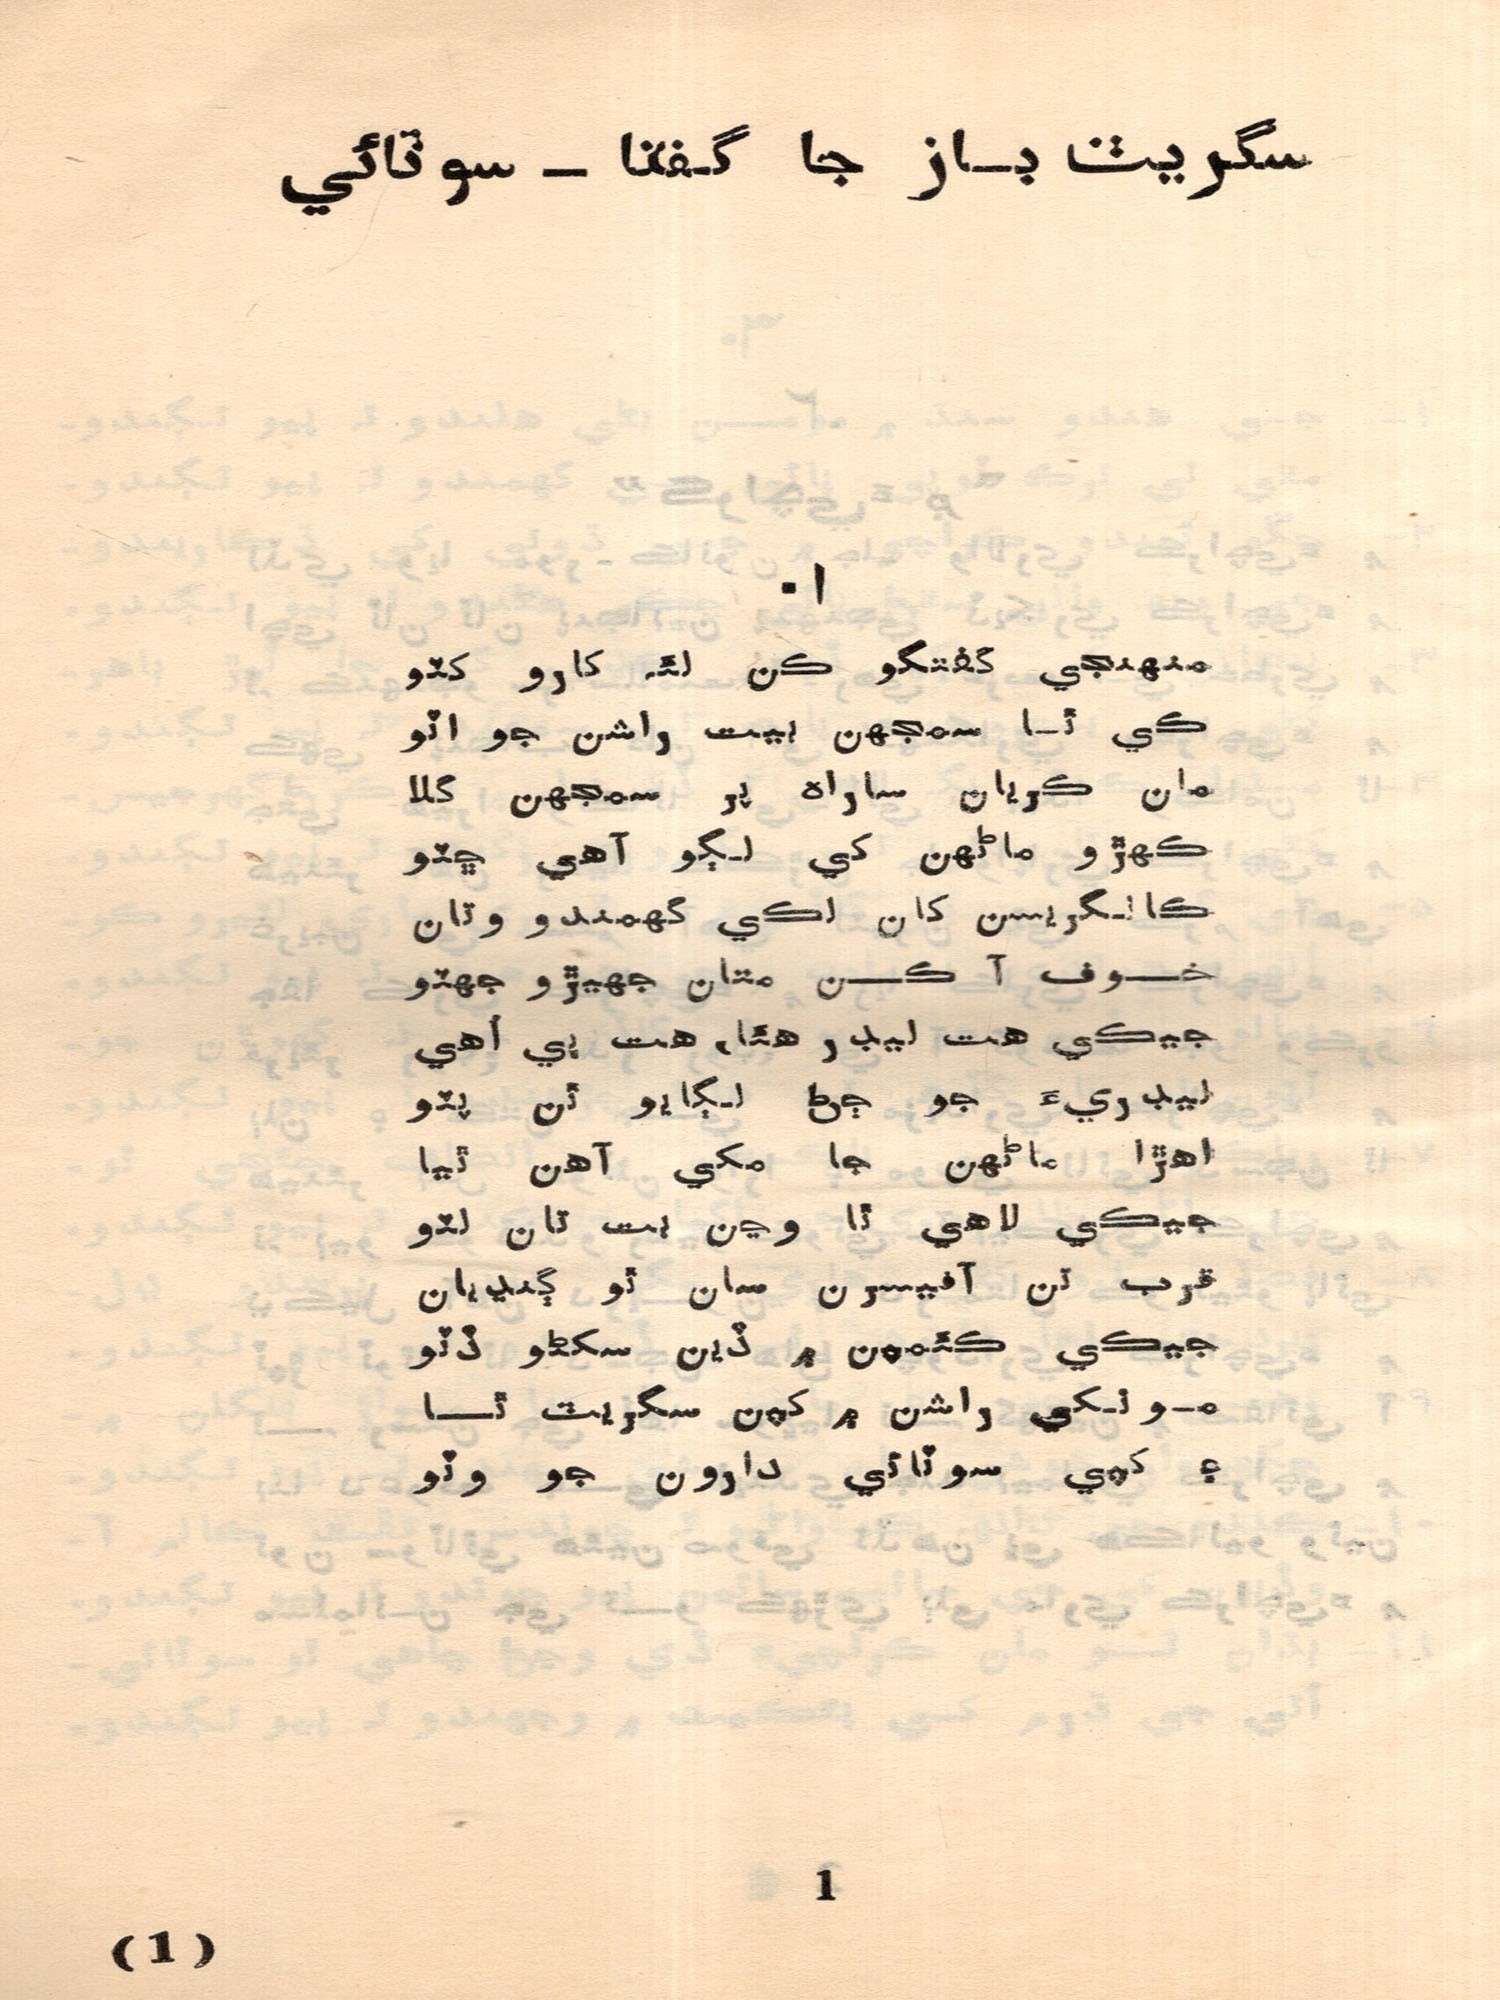 سگريٽ باز جا گفتا - سوٿائي
۱۰
منهنجي گفتگو کن لئہ کارو کٽو
کي ٿا سمجهن بيت راشن جو اٽو
مان ڪريان ساراه پر سمجهن گلا
ڪهڙو ماڻهن کي لڳو آهي چٽو
ڪانگريسن کان لڪي گهمندو وتان
خوف آ ڪن متان جهيڙو جهٽو
جيڪي هت ليڊر هئا، هت ڀي اُهي
ليڊريءَ جو ڄڻ لڳايو ٿن پٽو
اهڙا ماڻهن جا مکي آهن ٿيا
جيڪي لاهي ٿا وڃن بت تان لٽو
قرب تن آفيسرن سان ٿو ڳنڍيان
جيڪي ڪئمپن ۾ ڏين سکڻو ڏٽو
مونکي راشن ۾ کپن سگريٽ ٿا
۽ کپي سوٿائي دارون جو وٽو
1
(1)